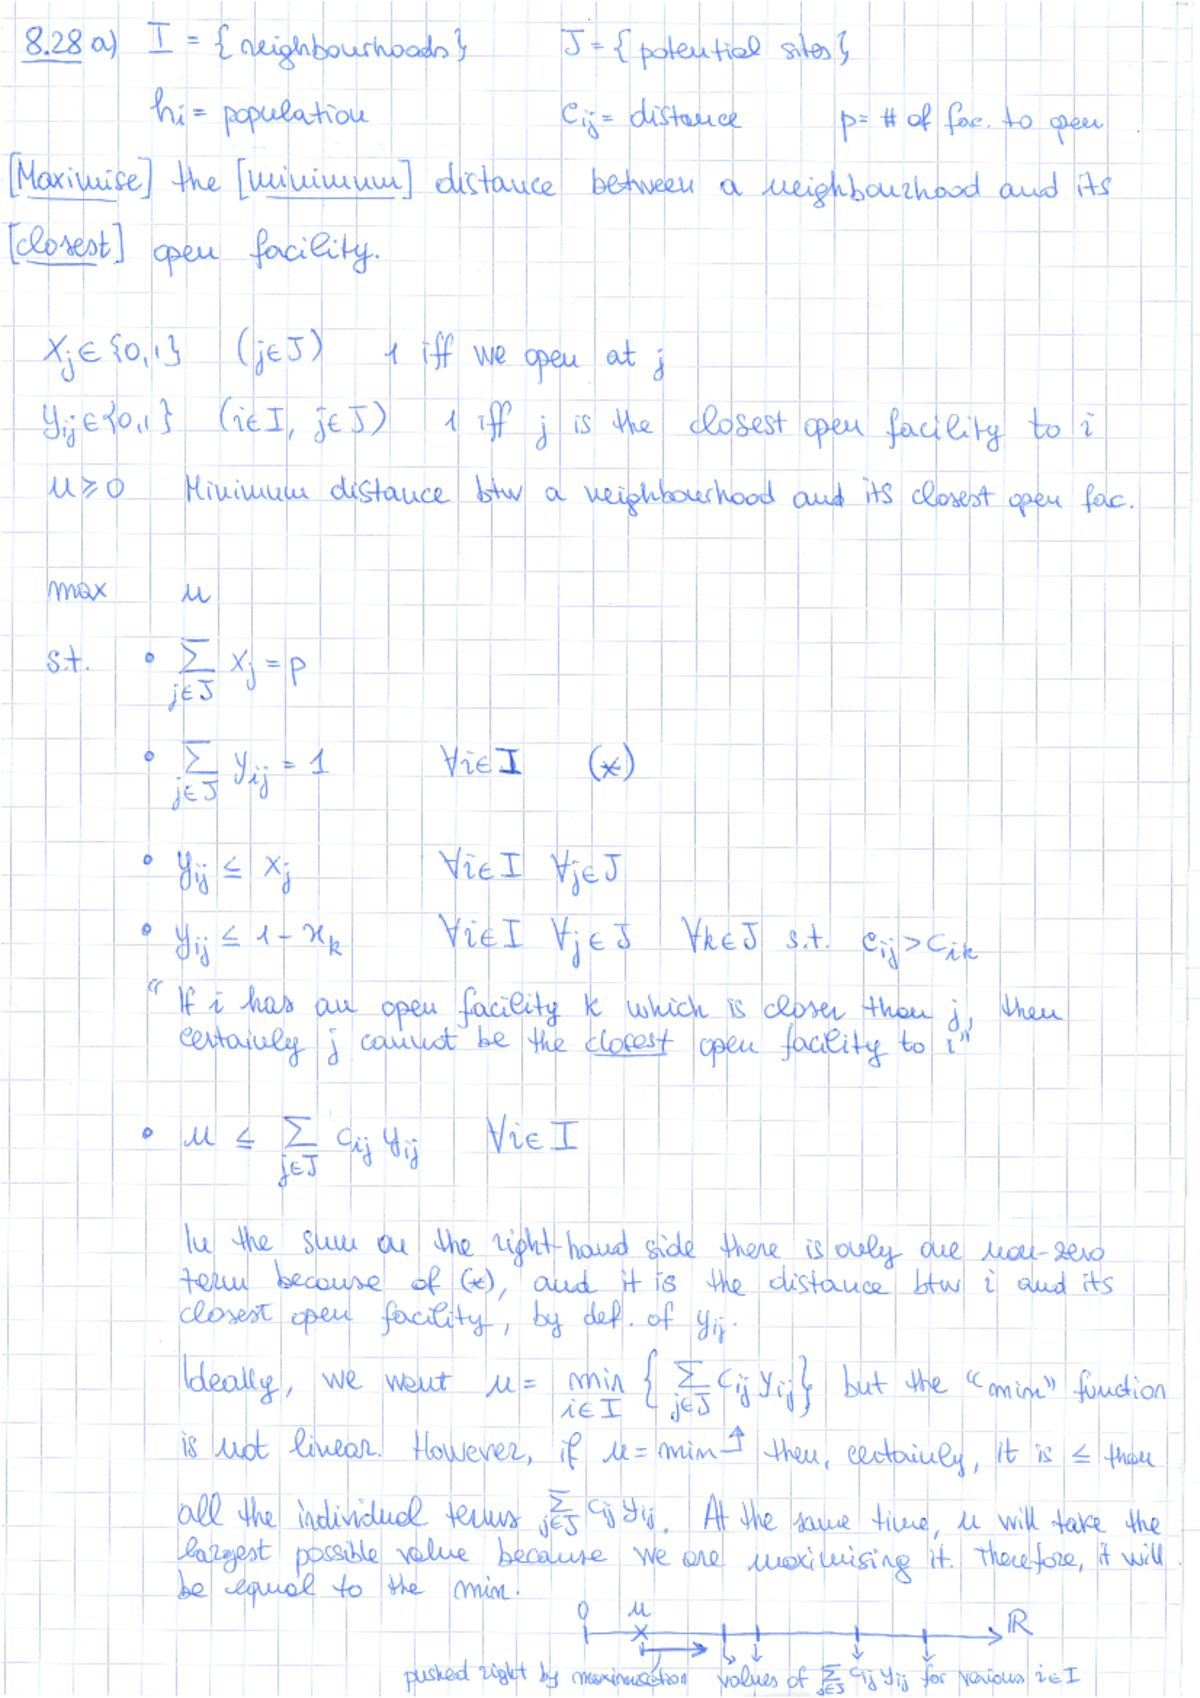 8.28 a) I = { neighbourhoods } J = { potential sites }
hi = population cij = distance p = # of fac. to open
[Maximise] the [minimum] distance between a neighbourhood and its
[closest] open facility.
xj ∈ {0,1} (j∈J) 1 iff we open at j
yij ∈ {0,1} (i∈I, j∈J) 1 iff j is the closest open facility to i
u ≥ 0 Minimum distance btw a neighbourhood and its closest open fac.
max u
s.t. • ∑_{j∈J} xj = p
• ∑_{j∈J} yij = 1 ∀i∈I (*)
• yij ≤ xj ∀i∈I ∀j∈J
• yij ≤ 1 - xk ∀i∈I ∀j∈J ∀k∈J s.t. cij > cik
"If i has an open facility k which is closer than j, then
certainly j cannot be the closest open facility to i"
• u ≤ ∑_{j∈J} cij yij ∀i∈I
In the sum on the right-hand side there is only one non-zero
term because of (*), and it is the distance btw i and its
closest open facility, by def. of yij.
Ideally, we want u = min_{i∈I} { ∑_{j∈J} cij yij } but the "min" function
is not linear. However, if u = min ↑ then, certainly, it is ≤ than
all the individual terms ∑_{j∈J} cij yij. At the same time, u will take the
largest possible value because we are maximising it. Therefore, it will
be equal to the min.
0 u ℝ
pushed right by maximisation values of ∑_{j∈J} cij yij for various i∈I